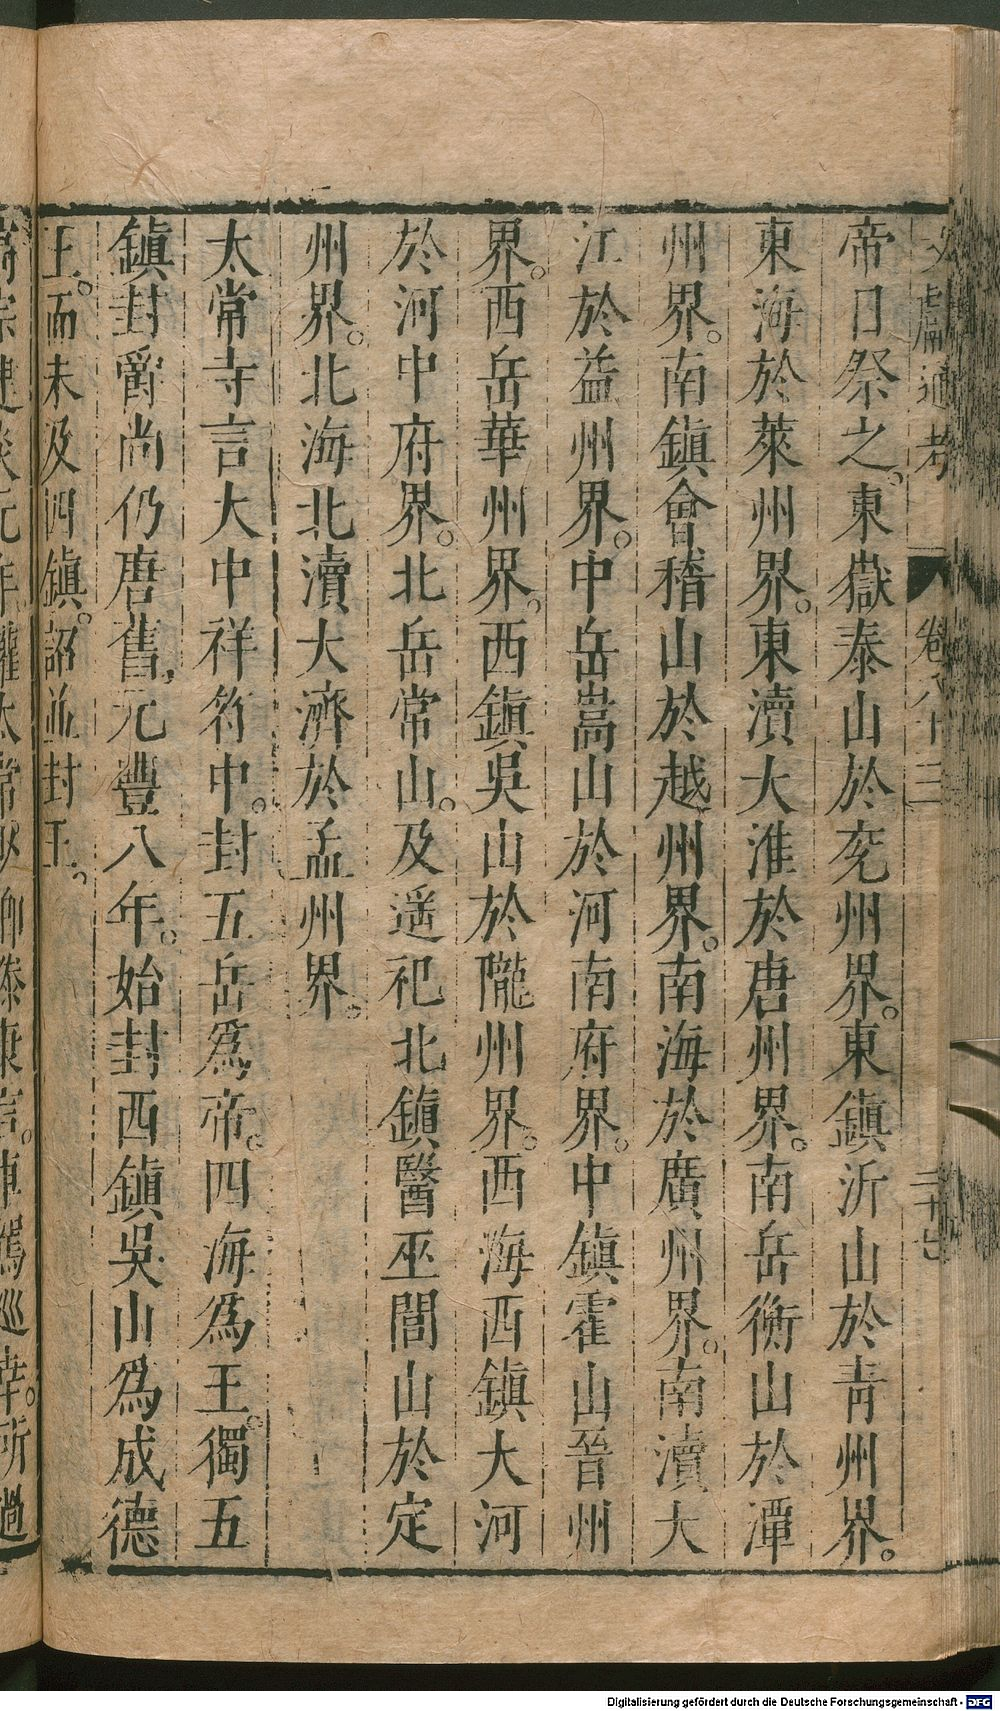 文獻通考 卷八十三 二十七
帝日祭之。東嶽泰山於兖州界。東鎮沂山於青州界。
東海於萊州界。東瀆大淮於唐州界。南岳衡山於潭
州界。南鎮會稽山於越州界。南海於廣州界。南瀆大
江於益州界。中岳嵩山於河南府界。中鎮霍山晉州
界。西岳華州界。西鎮吳山於隴州界。西海西鎮大河
於河中府界。北岳常山。及遥祀北鎮醫巫閭山於定
州界。北海北瀆大濟於孟州界。
太常寺言大中祥符中。封五岳爲帝。四海爲王。獨五
鎮封爵尚仍唐舊,元豐八年。始封西鎮吳山爲成德
王。而未及四鎮。詔並封王。
高宗建炎元年。權太常少卿滕康言。車駕巡幸。所過
Digitalisierung gefördert durch die Deutsche Forschungsgemeinschaft - DFG